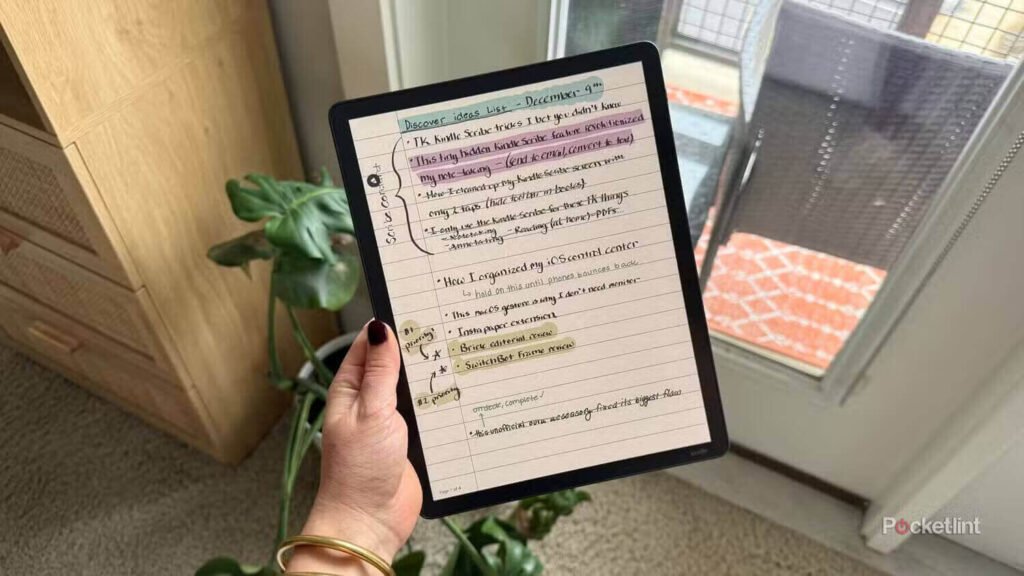 Discover ideas List - December 9th
• TK Kindle Scribe tricks I bet you didn't know
• This tiny hidden Kindle Scribe feature revolutionized
my note-taking - (send to email, convert to text)
• How I cleaned up my Kindle Scribe screen with
only 2 taps (hide toolbar in books)
• I only use the Kindle Scribe for these TK things
- Notetaking - Reading (at home) - PDFs
- Annotating
Scribe content
• How I organized my iOS control center
↳ hold on this until phones bounces back
• This macOS gesture is why I don't need monitor
• Instapaper extension
#1 priority
• Brick editorial review
• SwitchBot Frame review
#2 priority
ondeck, complete ✓
• this unofficial oura accessory fixed its biggest flaw
Page 1 of
kindle
Pocketlint